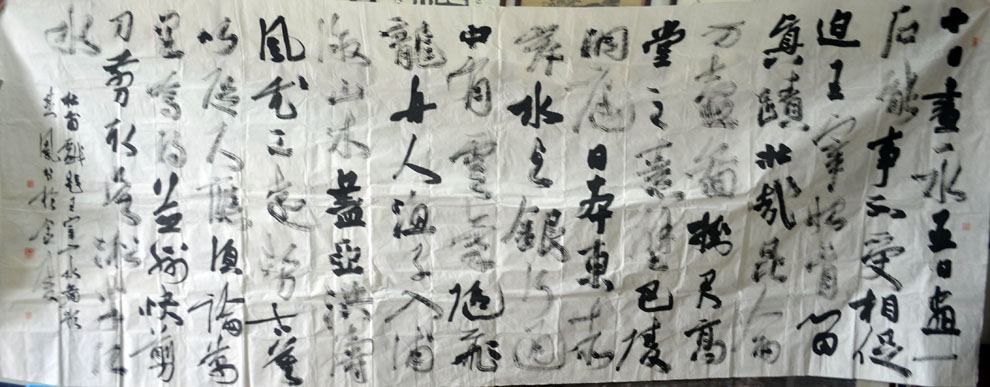 十日畫一水五日畫一
石能事不受相促
迫王宰始肯留
真蹟壯哉昆侖
方壺圖掛君高
堂之素壁巴陵
洞庭日本東赤
岸水與銀河通
中有雲氣隨飛
龍舟人漁子入浦
漵山木盡亞洪濤
風尤工遠勢古莫
比咫尺應須論萬
里焉得並州快剪
刀剪取吳淞半江
水
杜甫戲題王宰山水圖歌